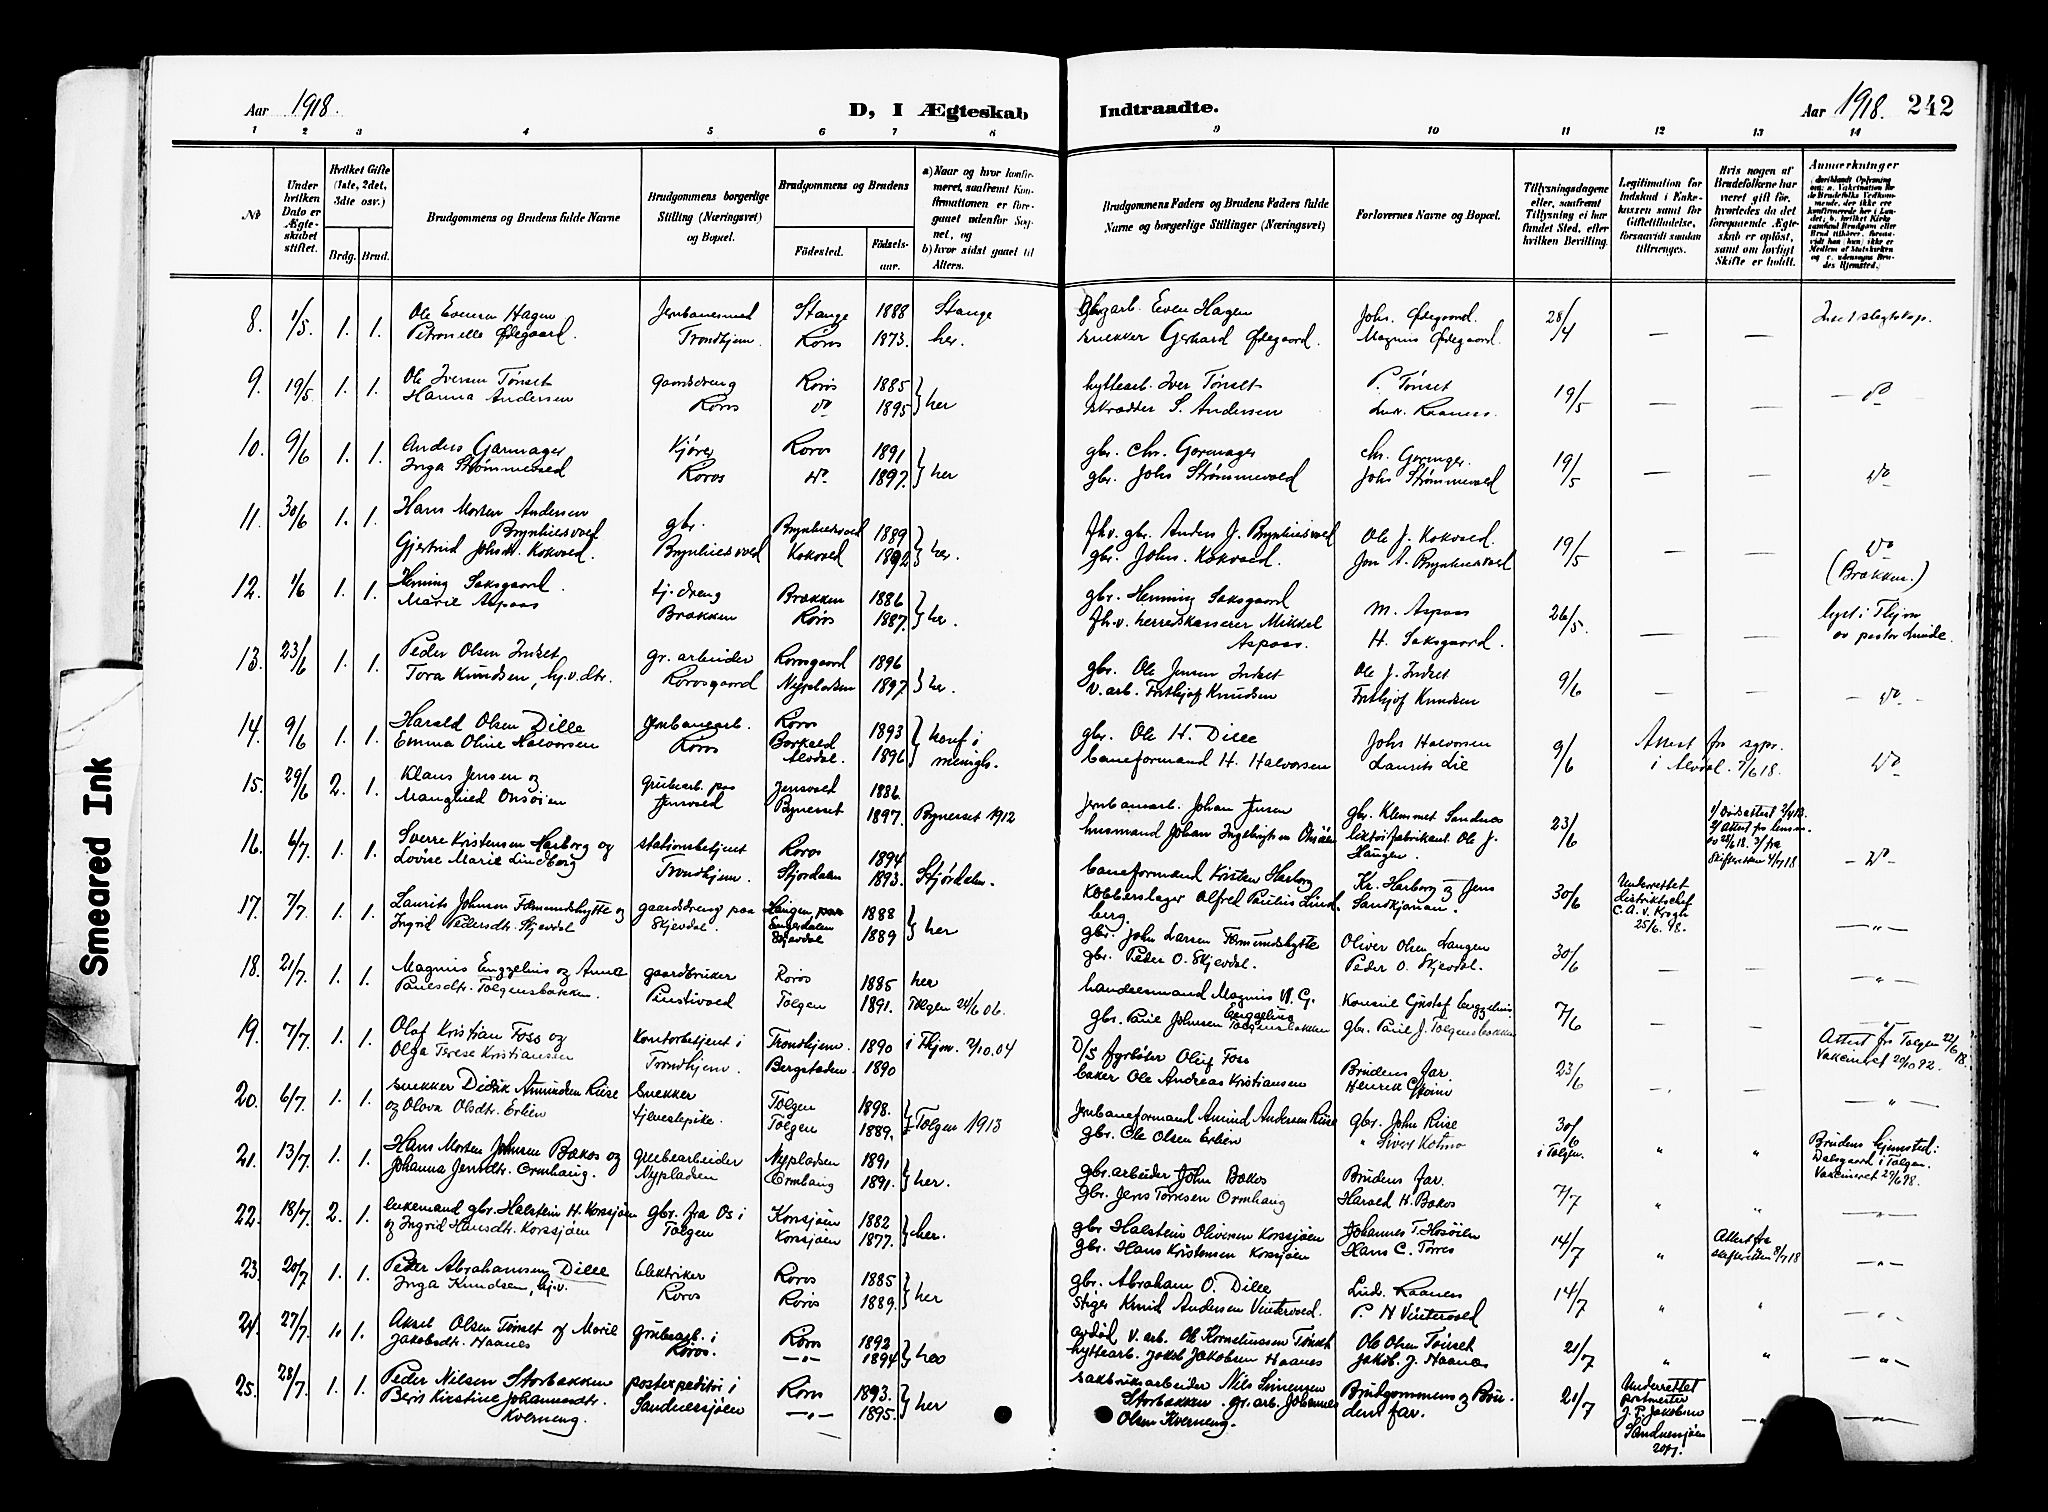 Aar 1918.
D, I Ægteskab Indtraadte.
Aar 1918. 242
1 2 3 4 5 6 7 8 9 10 11 12 13 14
No
Under hvilken Dato er Ægteskabet stiftet.
Hvilket Gifte (1ste, 2det, 3dte osv.)
Brdg. Brud.
Brudgommens og Brudens fulde Navne
Brudgommens borgerlige Stilling (Næringsvei) og Bopæl.
Brudgommens og Brudens
Fødested. Fødselsaar.
a) Naar og hvor konfirmeret, saafremt Konfirmationen er foregaaet udenfor Sognet, og
b) hvor sidst gaaet til Alters.
Brudgommens Faders og Brudens Faders fulde Navne og borgerlige Stillinger (Næringsvei)
Forlovernes Navne og Bopæl.
Tillysningsdagene eller, saafremt Tillysning ei har fundet Sted, efter hvilken Bevilling.
Legitimation for Indskud i Enkekassen samt for Giftetilladelse, forsaavidt saadan tiltrænges.
Hvis nogen af Brudefolkene har været gift før, hvorledes da det foregaaende Ægteskab er opløst, samt om lovligt Skifte er holdt.
Anmærkninger
8. 1/5. 1. 1. Ole Evensen Hagen Jernbanemand Stange 1888 Stange arb. Even Hagen Johs. Ødegaard. 28/4 — —
Petronelle Ødegaard. Trondhjem. Røros 1873. her. snekker Gerhard Ødegaard. Magnus Ødegaard.
9. 19/5. 1. 1. Ole Iversen Tønset gaardsdreng Røros 1885 her hyttearb. Iver Tønset P. Tønset 19/5 — — do
Hanna Andersen Røros do 1895 skrædder S. Andersen Ludv. Raanes.
10. 9/6 1. 1. Anders Garmager Kjører Røros 1891 her gbr. Chr. Garmager Chr. Garmager. 19/5 — — do
Inga Strømmevold Røros do 1897. gbr. Johs Strømmevold Johs Strømmevold
11. 30/6 1. 1. Hans Morten Andersen
Brynhildsvold gbr. Brynhildsvold 1889 her. fh.v. gbr. Anders J. Brynhildsvold Ole J. Kokvold. 19/5 — — do
Gjertrud Johsdtr. Kokvold. Brynhildsvold Kokvold 1892 gbr. Johs. Kokvold. Jon A. Brynhildsvold (Brækken.)
12. 1/6 1. 1. Henning Saksgaard. tj. dreng Brækken 1886 her. gbr. Henning Saksgaard M. Aspaas 26/5. — — lyst i Thjem
Marie Aspaas Brækken Røros 1887. fh.v. herredskasserer Mikkel Aspaas. H. Saksgaard. av pastor Linde.
13. 23/6 1. 1. Peder Olsen Indset gr. arbeider Rørosgaard 1896 her. gbr. Ole Jensen Indset Ole J. Indset 9/6 — — do
Tora Knudsen, hj.v.dtr. Rørosgaard Nypladsen 1897 v. arb. Frithjof Knudsen Frithjof Knudsen
14. 9/6 1. 1. Harald Olsen Dille Jernbanearb. Røros 1893 konf i gbr. Ole H. Dille John Halvorsen 9/6 Attest fra sgpr.
Emma Oline Halvorsen Røros Borkald Alvdal. 1896 menigh. baneformand H. Halvorsen Laurits Lie i Alvdal. 7/6 18. do
15. 29/6 2. 1. Klaus Jensen og grubearb. paa Jensvold 1886. Jernbanearb. Johan Jensen gbr. Klemmet Sandnes 23/6 1/ Dødsattest 2/4 13.
Magnhild Onsøien Jensvold Bynesset 1897. Bynesset 1912 husmand Johan Ingebrigtsen Onsøien likørfabrikant Ole J. Haugen. 2/ Attest fra lensm. av 28/6 18. 3/ fra Skifteretten 4/7 18 do
16. 6/7. 1. 1. Sverre Kristensen Harborg og stationsbetjent Røros 1894 baneformand Kristen Harborg Kr. Harborg og Jens 30/6 Underrettet
Lovise Marie Lindberg Trondhjem. Stjørdalen 1893. Stjørdalen. Kobberslager Alfred Paulus Lindberg. Sandkjærnan. Distriktschef C. A. v. Krogh 25/6. 18.
17. 7/7. 1. 1. Laurits Johnsen Fæmundshytte og gaardsdreng paa Langen paa 1888 her gbr. John Larsen Fæmundshytte Oliver Olsen Langen 30/6 — —
Ingrid Pedersdtr. Skjevdal Skjevdal. Engerdalen Skjevdal 1889 gbr. Peder O. Skjevdal. Peder O. Skjevdal.
18. 21/7. 1. 1. Magnus Engzelius og Anne gaardbruker Røros 1885 her handelsmand Magnus W. G. Engzelius Konsul Gustaf Engzelius 7/6
Paulsdtr. Tolgensbakken. Pinstivold Tolgen 1891. Tolgen 24/6 06. gbr. Paul Johnsen Tolgensbakken gbr. Paul J. Tolgensbakken Attest fra Tolgen 22/6 18.
19. 7/7. 1. 1. Olaf Kristian Foss og kontorbetjent i Trondhjem. 1890 i Thjem. 2/10.04 D/S fyrbøter Oluf Foss Brudens far 23/6 Vakcineret 20/10 92.
Olga Terese Kristiansen Trondhjem. Bergstaden. 1890 baker Ole Andreas Kristiansen Henrik
20. 6/7. 1. 1. snekker Didrik Amundsen Riise Snekker Tolgen 1898. Tolgen 1913 Jernbaneformand Amund Andersen Riise gbr. John Riise 30/6 i Tolgen. Brudens hjemsted:
og Olava Olsdtr. Erlien tjenestepike. Tolgen 1889. gbr. Ole Olsen Erlien " Sivert Kotmo Dalsgaard i Tolgen. Vakcineret 29/6 98.
21. 13/7. 1. 1. Hans Morten Johnsen Bakos og grubearbeider Nypladsen 1891 her. gbr. arbeider John Bakos Brudens far. 7/7 " "
Johanna Jensdtr. Ormhaug. Nypladsen Ormhaug 1891. gbr. Jens Tørresen Ormhaug Harald H. Bakos
22. 18/7. 2. 1. enkemand gbr. Halstein H. Korssjøen gbr. fra Os i Korssjøen 1882 her. gbr Halstein Oliversen Korssjøen Johannes T. Hosøien 14/7 " Attest fra
og Ingrid Hansdtr. Korssjøen Tolgen Korssjøen 1877. gbr. Hans Kristensen Korssjøen Hans C. Torres skifteretten 8/7 18
23. 20/7. 1. 1. Peder Abrahamsen Dille Elektriker Røros 1885 her gbr. Abraham O. Dille Lud. Raanes 14/7 " "
Inga Knudsen, hj.v. Røros Røros 1889. Stiger Knud Andersen Vintervold. P. N Vintervold
24. 27/7. 1. 1. Aksel Olsen Tønset og Marie grubearb. i Røros 1892 her avdød v. arb. Ole Korneliussen Tønset Ole Olsen Tønset 21/7 " "
Jakobsdtr. Haanes Røros. —„— 1894. hyttearb. Jakob Jakobsen Haanes Jakob. J. Haanes
25. 28/7. 1. 1. Peder Nilsen Storbækken postexpeditør i Røros 1893. her sakbruksarbeider Nils Simensen Brudgommens og Bru- 21/7 Underrettet
Berit Kirstine Johannesdtr. Sandnessjøen —„— 1895. Storbækken. gr. arb. Johannes dens far. postmester J. P. Jakobsen
Kverneng. Olsen Kverneng. Sandnessjøen 20/7.
Smeared Ink